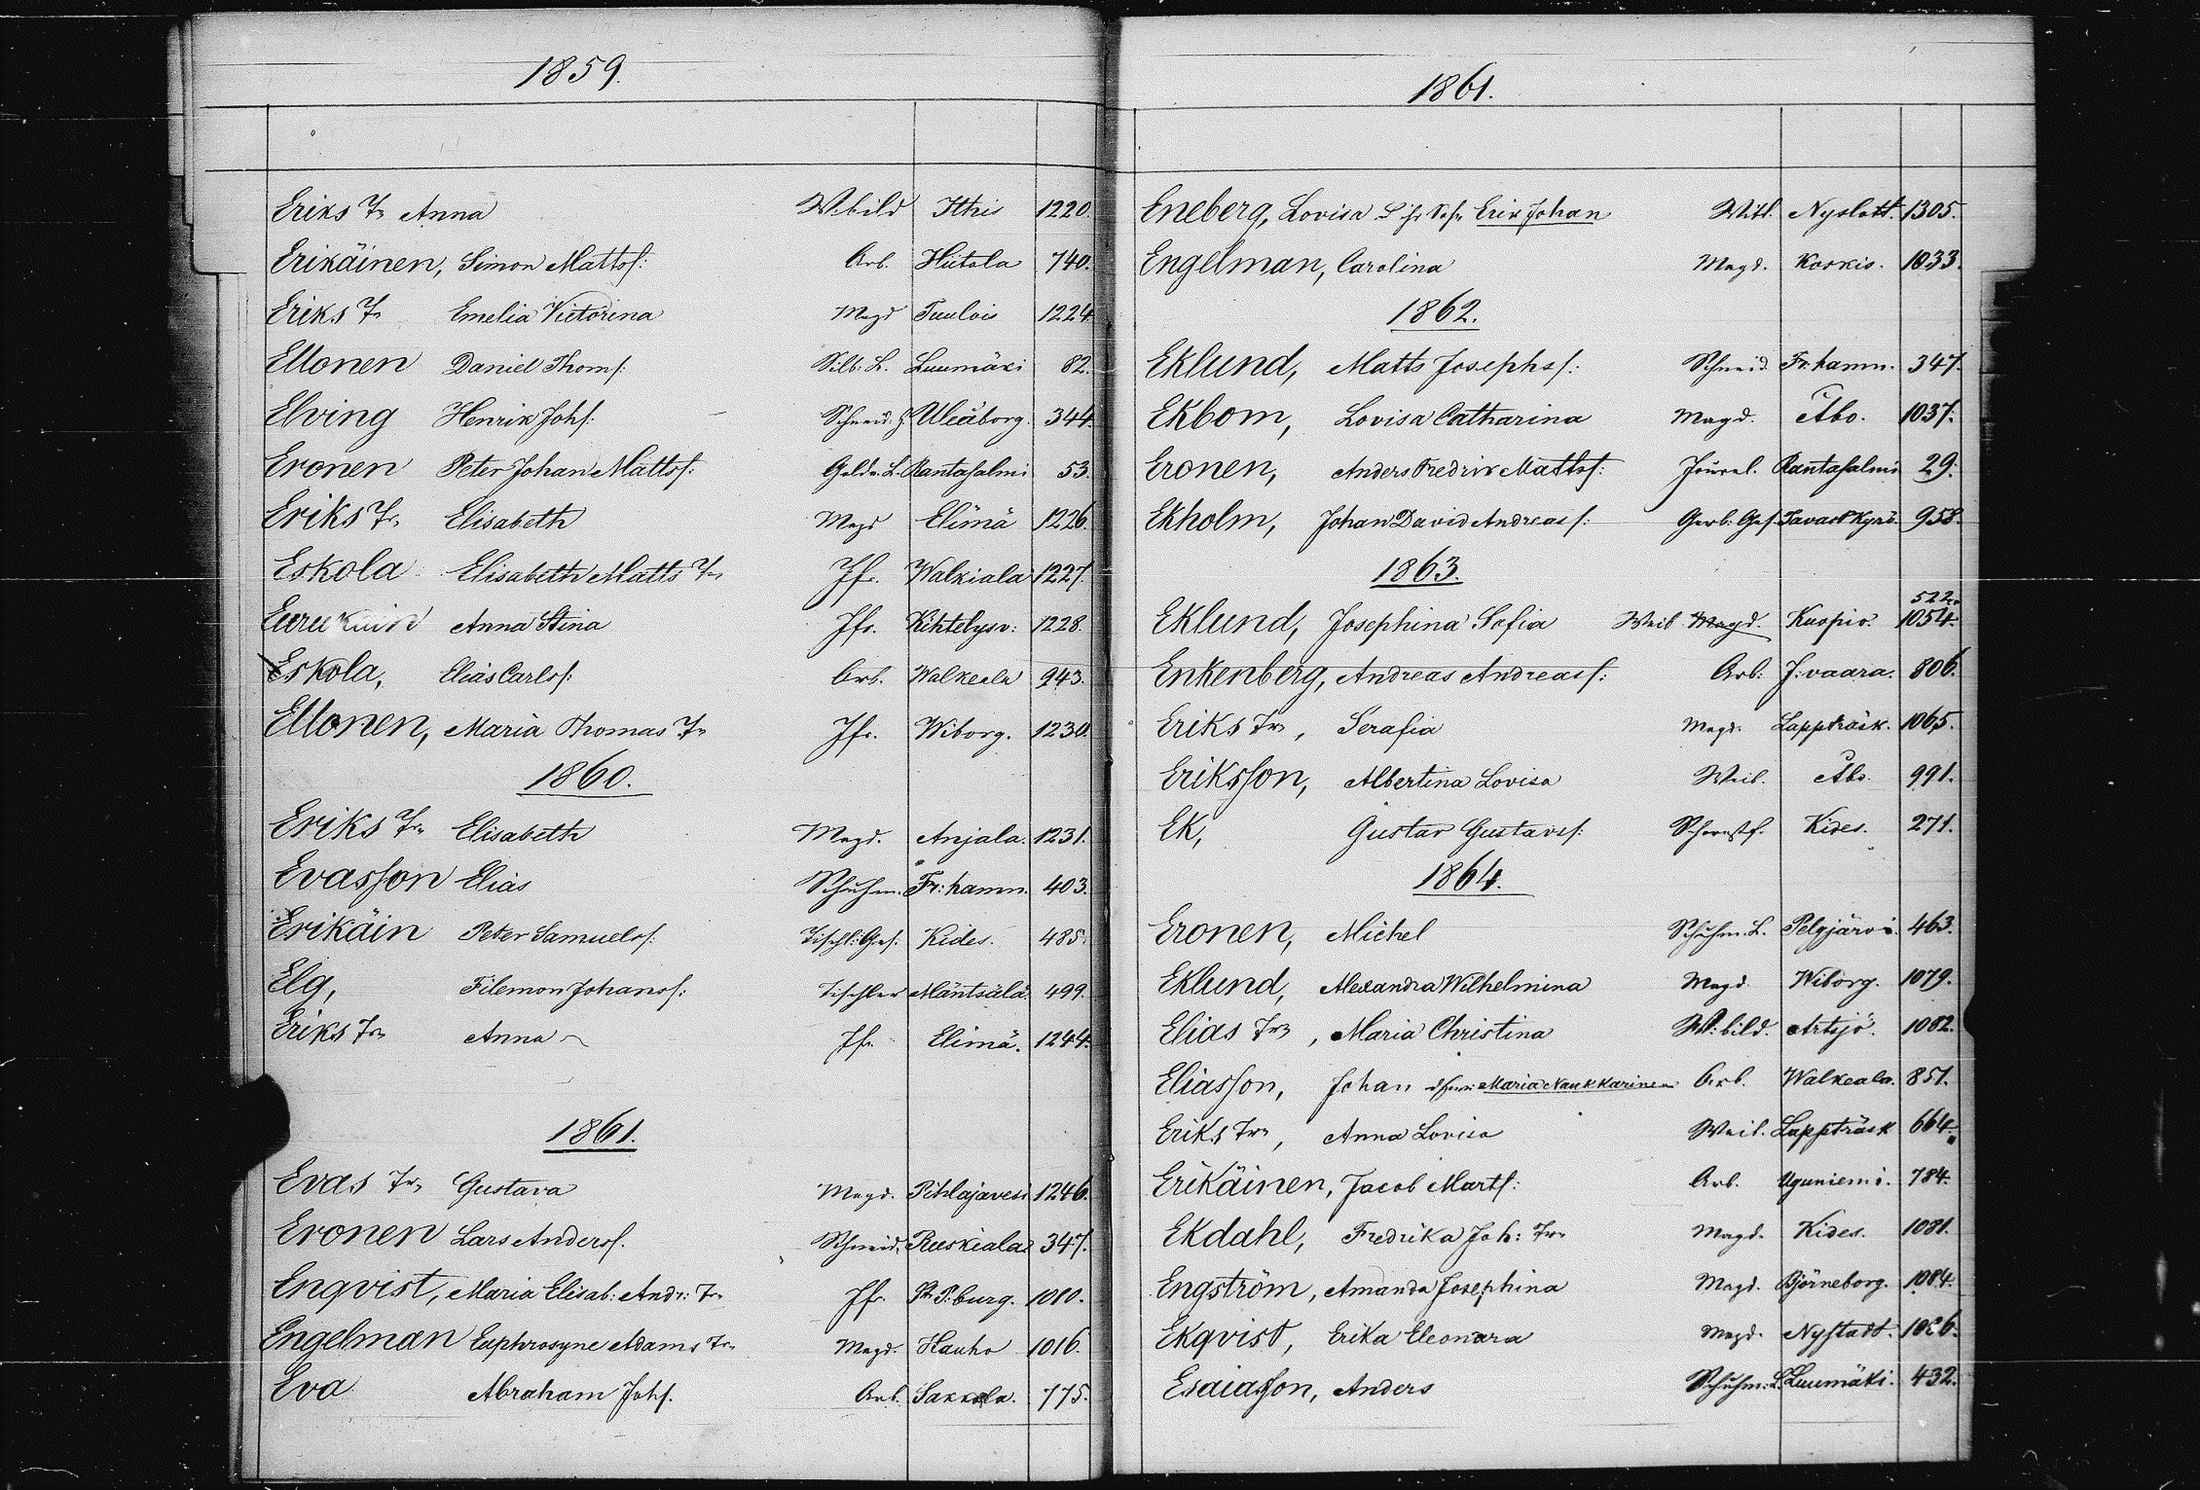 1859.
Eriks Tr Anna W.bild Itkis 1220.
Erikäinen, Simon Mattsf: Arb. Hiitola 740.
Eriks Tr Emelia Victorina Magd Tuulois 1224
Ellonen Daniel Thomf: Silb: L. Luumäki 82.
Elving Henrik Johf: Schneid. G. Uleåborg. 344.
Eronen Peter Johan Mattsf: Goldr. L. Rantasalmi 53.
Eriks Tr. Elisabeth Magd Elimä 1226.
Eskola Elisabeth Matts Tr Jfr. Walkiala 1227.
Anna Stina Jfr. Kihtelysv: 1228.
Eskola, Elias Carlsf: Arb. Walkeala 943.
Ellonen, Maria Thomas Tr Jfr. Wiborg. 1230.
1860.
Eriks Tr. Elisabeth Magd. Anjala. 1231.
Evasson Elias Schuhm. Fr: hamn. 403.
Erikäin Peter Samuelsf: Tischl: Ges. Kides. 485.
Elg, Filemon Johansf: Tischler Mäntsälä. 499.
Eriks Tr Anna Jfr. Elimä. 1244.
1861.
Evas Tr, Gustava Magd. Pihlajavesi 1246.
Eronen Lars Andersf. Schneid. Ruskiala 347.
Enqvist, Maria Elisab: Andr: Tr Jfr. St. P:burg. 1010.
Engelman Euphrosyne Adams Tr. Magd. Hauho 1016.
Eva Abraham Johf. Arb. Sakkola. 775.
1861.
Eneberg, Lovisa Erik Johan Nyslott. 1305.
Engelman, Carolina Magd. Koskis. 1033.
1862.
Eklund, Matts Josephsf: Schneid. Fr: hamn. 347.
Ekbom, Lovisa Catharina Magd. Åbo. 1037.
Eronen, Anders Fredrik Mattsf: Juwel. Rantasalmi 29.
Ekholm, Johan David Andreasf: Gerb: Ges. Tavast Kyrö. 958.
1863.
522.
Eklund, Josephina Sofia Weib Magd. Kuopio. 1054.
Enkenberg, Andreas Andreasf: Arb: J:vaara. 806.
Eriks Tr, Serafia Magd. Lappträsk. 1065.
Eriksson, Albertina Lovisa Weib. Åbo. 991.
Ek, Gustav Gustavsf: Schornstf. Kides. 271.
1864.
Eronen, Michel Schuhm. L. Pelgjärvi. 463.
Eklund, Alexandra Wilhelmina Magd. Wiborg. 1079.
Elias Tr, Maria Christina W:bild. Artsjö. 1082.
Eliasson, Johan Maria Naukkarinen Arb. Walkeala. 851.
Eriks Tr, Anna Lovisa Weib. Lappträsk 664.
Erikäinen, Jacob Martf: Arb. Uguniemi. 784.
Ekdahl, Fredrika Joh: Tr Magd. Kides. 1081.
Engström, Amanda Josephina Magd. Björneborg. 1084.
Ekqvist, Erika Eleonora Magd. Nystadt. 1086.
Esaiasson, Anders Schuhm: L. Luumäki. 432.